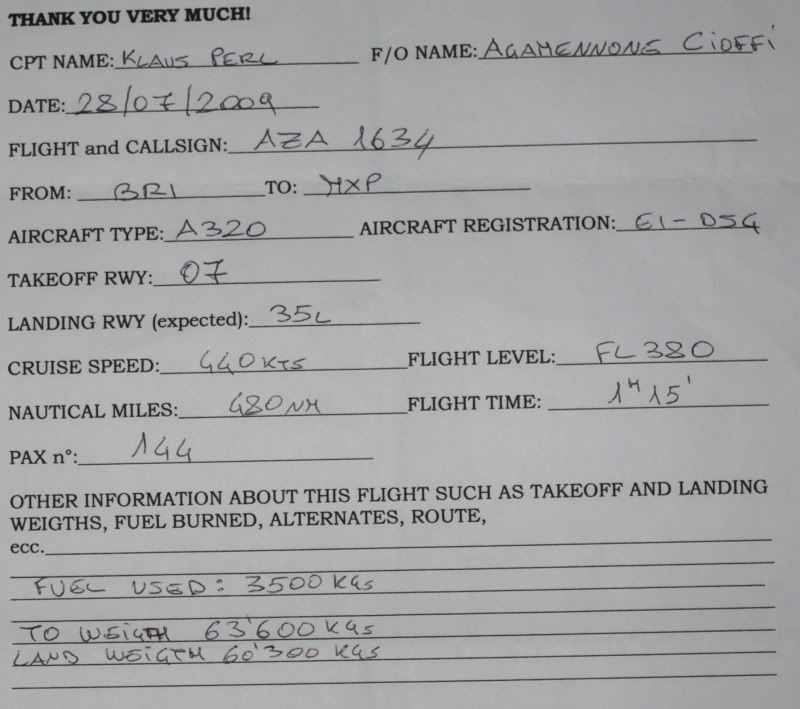 THANK YOU VERY MUCH!
CPT NAME: KLAUS PERL F/O NAME: AGAMENNONE CIOFFI
DATE: 28/07/2009
FLIGHT and CALLSIGN: AZA 1634
FROM: BRI TO: MXP
AIRCRAFT TYPE: A320 AIRCRAFT REGISTRATION: EI-DSG
TAKEOFF RWY: 07
LANDING RWY (expected): 35L
CRUISE SPEED: 440 KTS FLIGHT LEVEL: FL 380
NAUTICAL MILES: 480 NM FLIGHT TIME: 1H 15'
PAX n°: 144
OTHER INFORMATION ABOUT THIS FLIGHT SUCH AS TAKEOFF AND LANDING
WEIGTHS, FUEL BURNED, ALTERNATES, ROUTE,
ecc.
FUEL USED: 3500 KGS
TO WEIGTH 63'600 KGS
LAND WEIGTH 60'300 KGS